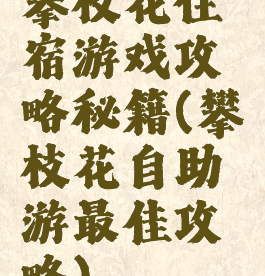 攀枝花住
宿游戏攻
略秘籍(攀
枝花自助
游最佳攻
略)